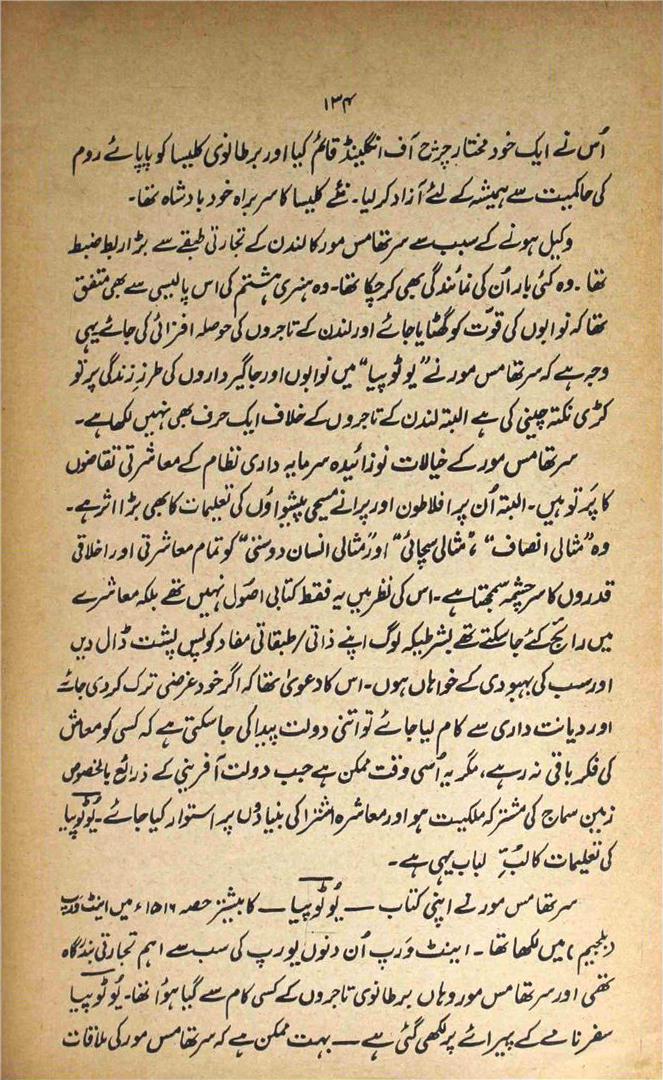 ۱۳۴
اُس نے ایک خود مختار چرچ آف انگلینڈ قائم کیا اور برطانوی کلیسا کو پاپائے روم
کی حاکمیت سے ہمیشہ کے لئے آزاد کر لیا۔ نئے کلیسا کا سربراہ خود بادشاہ تھا۔
وکیل ہونے کے سبب سے سر تھامس مور کا لندن کے تجارتی طبقے سے بڑا ربط ضبط
تھا۔ وہ کئی بار اُن کی نمائندگی بھی کر چکا تھا۔ وہ ہنری ہشتم کی اس پالیسی سے بھی متفق
تھا کہ نوابوں کی قوّت کو گھٹایا جائے اور لندن کے تاجروں کی حوصلہ افزائی کی جائے یہی
وجہ ہے کہ سر تھامس مور نے ”یوٹوپیا“ میں نوابوں اور جاگیرداروں کی طرزِ زندگی پر تو
کڑی نکتہ چینی کی ہے البتہ لندن کے تاجروں کے خلاف ایک حرف بھی نہیں لکھا ہے۔
سر تھامس مور کے خیالات نوزائیدہ سرمایہ داری نظام کے معاشرتی تقاضوں
کا پَرتو ہیں۔ البتہ اُن پر افلاطون اور پرانے مسیحی پیشواؤں کی تعلیمات کا بھی بڑا اثر ہے۔
وہ ”مثالی انصاف“، ”مثالی سچائی“ اور ”مثالی انسان دوستی“ کو تمام معاشرتی اور اخلاقی
قدروں کا سرچشمہ سمجھتا ہے۔ اس کی نظر میں یہ فقط کتابی اصول نہیں تھے بلکہ معاشرے
میں رائج کئے جا سکتے تھے بشرطیکہ لوگ اپنے ذاتی/طبقاتی مفاد کو پس پشت ڈال دیں
اور سب کی بہبودی کے خواہاں ہوں۔ اس کا دعویٰ تھا کہ اگر خود غرضی ترک کر دی جائے
اور دیانت داری سے کام لیا جائے تو اتنی دولت پیدا کی جا سکتی ہے کہ کسی کو معاش
کی فکر باقی نہ رہے، مگر یہ اُسی وقت ممکن ہے جب دولت آفرینی کے ذرائع بالخصوص
زمین سماج کی مشترکہ ملکیت ہو اور معاشرہ اشتراکی بنیادوں پر استوار کیا جائے۔ یُوٹوپیا
کی تعلیمات کا لبِّ لباب یہی ہے۔
سر تھامس مور نے اپنی کتاب — یُوٹوپیا — کا بیشتر حصہ ۱۵۱۶ء میں اینٹ ورپ
(بلجیم) میں لکھا تھا۔ اینٹ وَرپ اُن دنوں یورپ کی سب سے اہم تجارتی بندرگاہ
تھی اور سر تھامس مور وہاں برطانوی تاجروں کے کسی کام سے گیا ہوُا تھا۔ یُوٹوپیا
سفرنامے کے پیرائے پر لکھی گئی ہے — بہت ممکن ہے کہ سر تھامس مور کی ملاقات